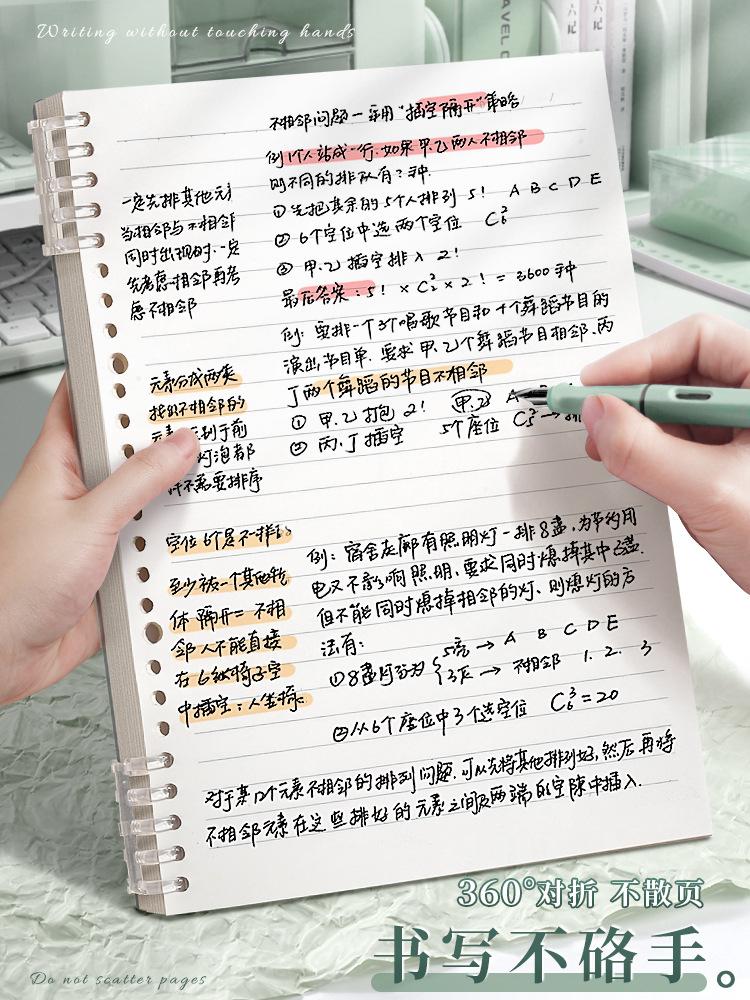 Writing without touching hands
不相邻问题—采用"插空隔开"策略
例1个人站成一行,如果甲.乙两人不相邻
则不同的排队有?种.
①先把其余的5个人排列 5! A B C D E
② 6个空位中选两个空位 C₆²
③ 甲.乙插空排入 2!
最后答案:5! × C₆² × 2! = 3600种
一定先排其他元素
当相邻与不相邻
同时出现时,一定
先考虑相邻再考
虑不相邻
例:要排一个3个唱歌节目和4个舞蹈节目的
演出节目单.要求甲.乙2个舞蹈节目相邻.丙
丁两个舞蹈的节目不相邻
① 甲.乙打包 2! 甲.乙 A
② 丙.丁插空 5个座位 C₅² → 排
元素分成两类
找出不相邻的
灯泡都
不需要排序
空位6个是不一样的
至少被一个其他物
体隔开=不相
邻人不能直接
在6纵椅子空
中插空:人坐椅
例:宿舍走廊有照明灯一排8盏,为节约用
电又不影响照明,要求同时熄掉其中3盏.
但不能同时熄掉相邻的灯、则熄灯的方
法有:
①8盏灯分为 5亮 → A B C D E
3灭 → 不相邻 1. 2. 3
②从6个座位中3个选空位 C₆³ = 20
对于某几个元素不相邻的排列问题.可以先将其他排列好,然后再将
不相邻元素在这些排好的元素之间及两端的空隙中插入.
360°对折 不散页
书写不硌手。
Do not scatter pages